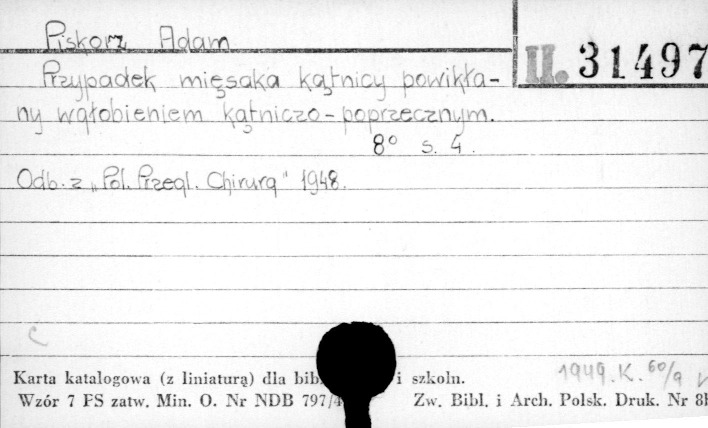 Piskorz Adam
II. 31497
Przypadek mięsaka kątnicy powikła-
ny wgłobieniem kątniczo-poprzecznym.
8° s. 4.
Odb. z „Pol. Przegl. Chirurg" 1948.
C
1949. K. 60/9
Karta katalogowa (z liniaturą) dla bibl. i szkoln.
Wzór 7 PS zatw. Min. O. Nr NDB 797/4 Zw. Bibl. i Arch. Polsk. Druk. Nr 8